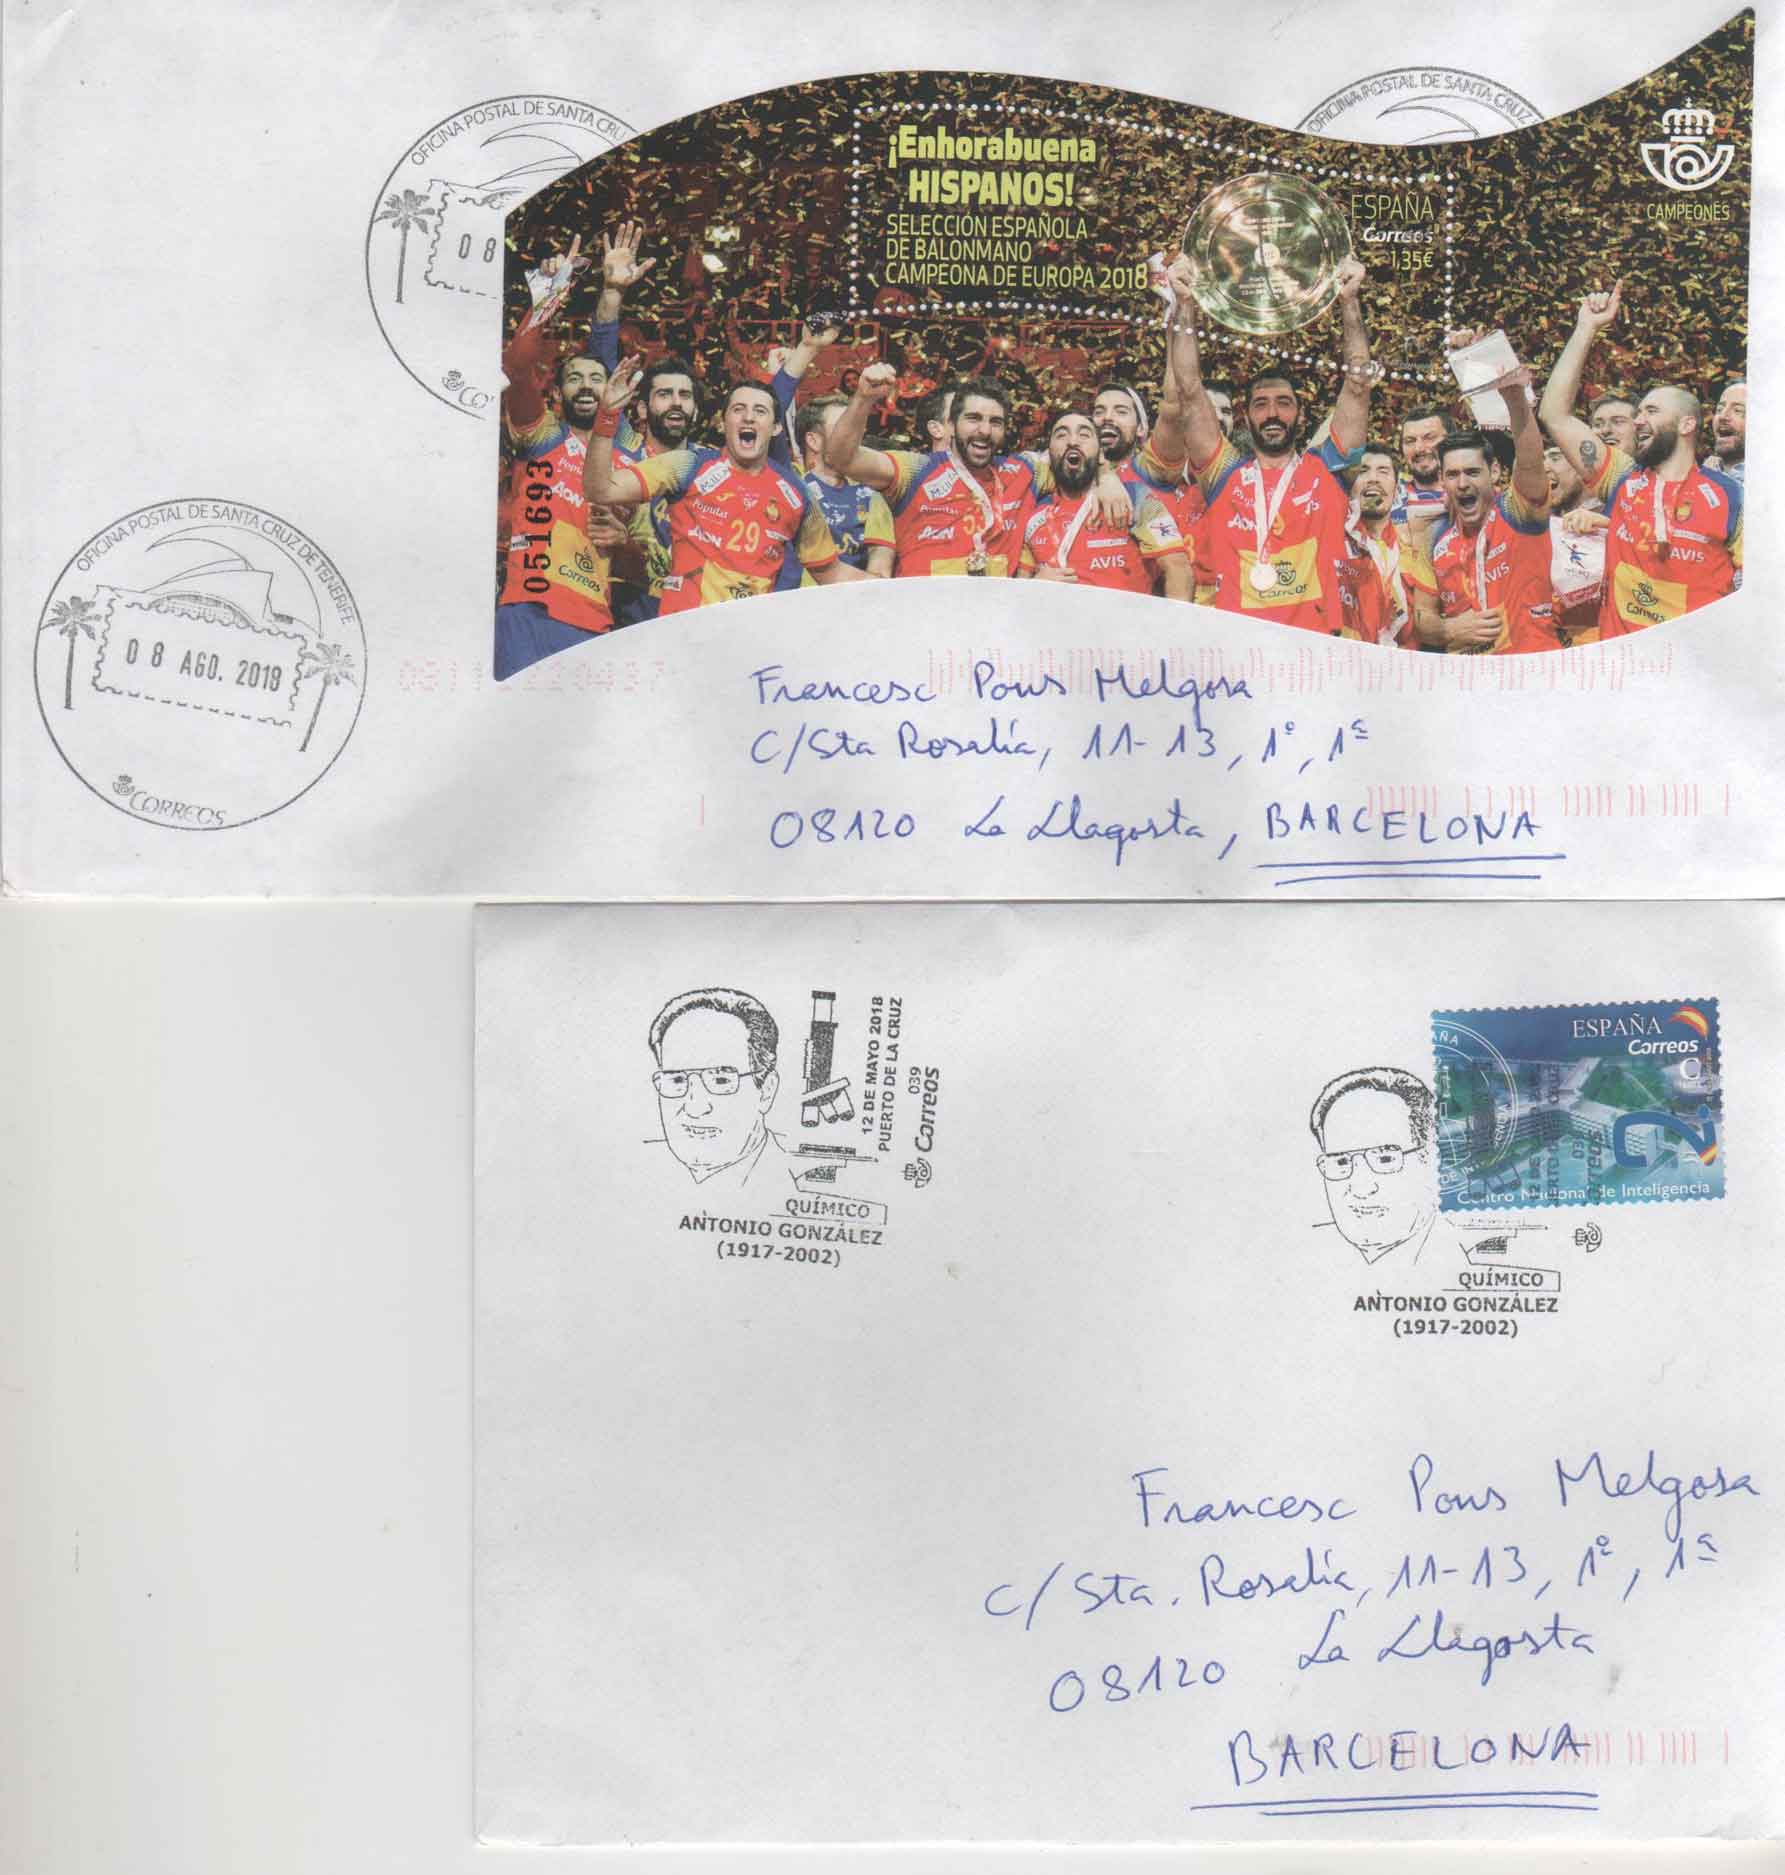 OFICINA POSTAL DE SANTA CRU
08
CO
OFICINA POSTAL DE SANTA CRUZ
¡Enhorabuena
HISPANOS!
SELECCIÓN ESPAÑOLA
DE BALONMANO
CAMPEONA DE EUROPA 2018
ESPAÑA
Correos
1,35€
CAMPEONES
0516931
29
AON
Correos
AVIS
Correos
AVIS
Correos
OFICINA POSTAL DE SANTA CRUZ DE TENERIFE
08 AGO. 2018
CORREOS
Francesc Pons Melgosa
C/Sta Rosalía, 11-13, 1º, 1ª
08120 La Llagosta, BARCELONA
12 DE MAYO 2018
PUERTO DE LA CRUZ
039
Correos
QUÍMICO
ANTONIO GONZÁLEZ
(1917-2002)
ESPAÑA
Correos
Centro Nacional de Inteligencia
QUÍMICO
ANTONIO GONZÁLEZ
(1917-2002)
Francesc Pons Melgosa
C/ Sta. Rosalía, 11-13, 1º, 1ª
08120 La Llagosta
BARCELONA